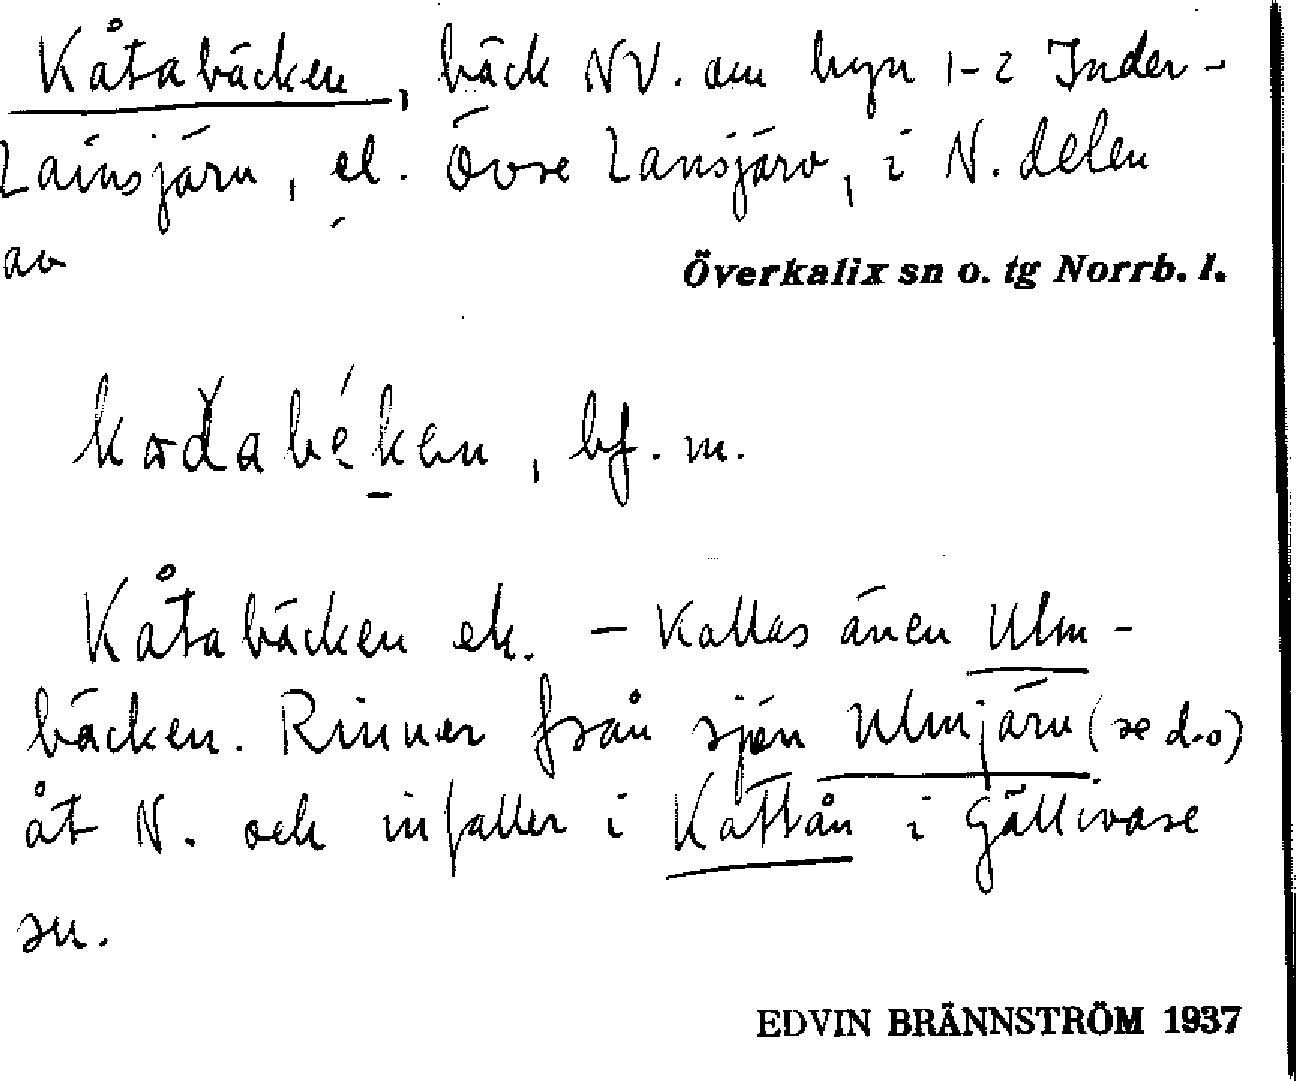 Kåtabäcken, bäck NV. om byn 1-2 Inder-
Lainsjärv, el. Övre Lansjärv, i N. delen
av
Överkalix sn o. tg Norrb. l.
bf. m.
Kåtabäcken ek. - Kallas även Ulm-
bäcken. Rinner från sjön Ulmjärv (se d.o)
åt N. och infaller i Kattån i Gällivare
sn.
EDVIN BRÄNNSTRÖM 1937